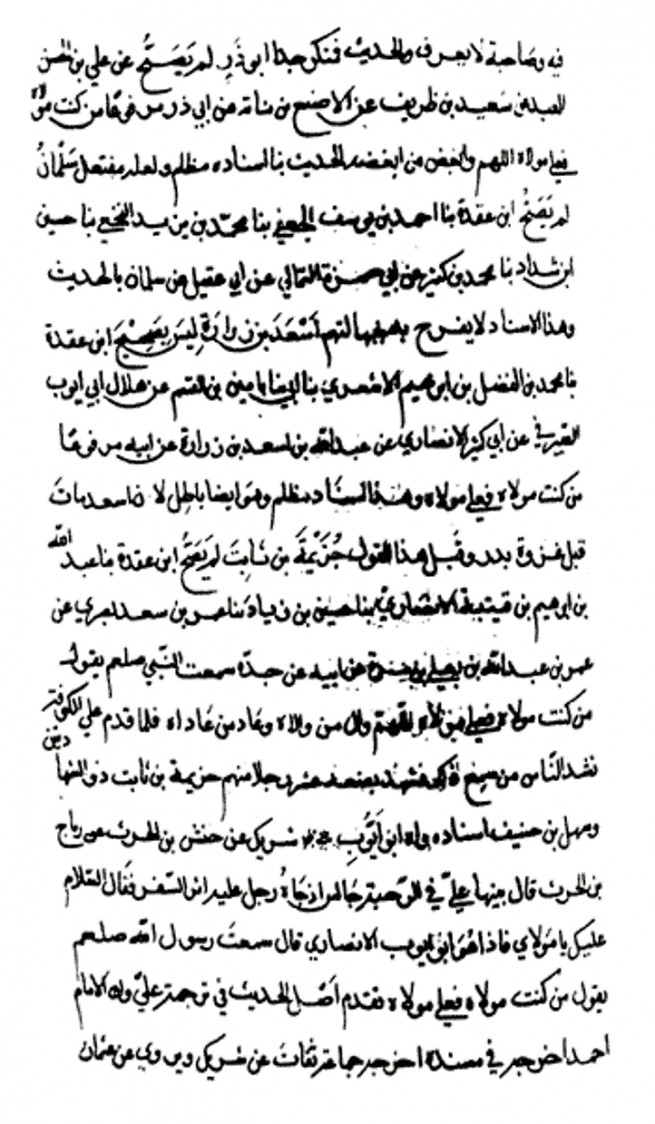 فيه وصاحبة لا يعرف والحديث فنكر جدا ابو ذر لم يصح عن علي بن الحسن
العبد بن سعيد بن ظريف عن الاصبغ بن نباتة عن ابي ذر مرفوعا من كنت مولاه
فعلي مولاه اللهم وابغض من ابغضه الحديث بنا اسناده مظلم ولعله مفتعل سلمان
لم يصح ابن عقدة بنا احمد بن يوسف الجعفي بنا محمد بن يزيد النخعي بنا حسين
ابن شداد بنا محمد بن كثير عن ابي حمزة الثمالي عن ابي عقيل عن سلمان بالحديث
وهذا الاسناد لا يفرح به اسعد بن زرارة ليس بصحيح ابن عقدة
بنا محمد بن الفضل بن ابرهيم الاشعري بنا ابي بنا بن القسم عن هلال ابي ايوب
الصيرفي عن ابي كثير الانصاري عن عبد الله بن اسعد بن زرارة عن ابيه مرفوعا
من كنت مولاه فعلي مولاه وهذا السناد مظلم وهو ايضا باطل لا اسعد مات
قبل غزوة بدر وقبل هذا القول خزيمة بن ثابت لم يصح ابن عقدة بنا عبد الله
بن ابرهيم بن قتيبة الانصاري بنا حسين بن زياد بنا عمر بن سعد البصري عن
عمر بن عبد الله بن يعلى بن مرة عن ابيه عن جده سمعت النبي صلعم يقول
من كنت مولاه فعلي مولاه اللهم وال من والاه وعاد من عاداه فلما قدم علي الكوفة
نشد الناس من سمع فشهد بضعة عشر رجلا منهم خزيمة بن ثابت ذو الشهادتين
وسهل بن حنيف اسناده ابو ايوب شريك عن حنش بن الحرث عن رياح
بن الحرث قال بينما علي في الرحبة جالس اذ جاء رجل عليه اثر السفر فقال السلام
عليك يا مولاي فاذا هو ابو ايوب الانصاري قال سمعت رسول الله صلعم
يقول من كنت مولاه فعلي مولاه فقدم اصل الحديث في ترجمة علي وله الامام
احمد اخرجه في مسنده اخرجه جماعة ثقات عن شريك ويروي عن عثمان